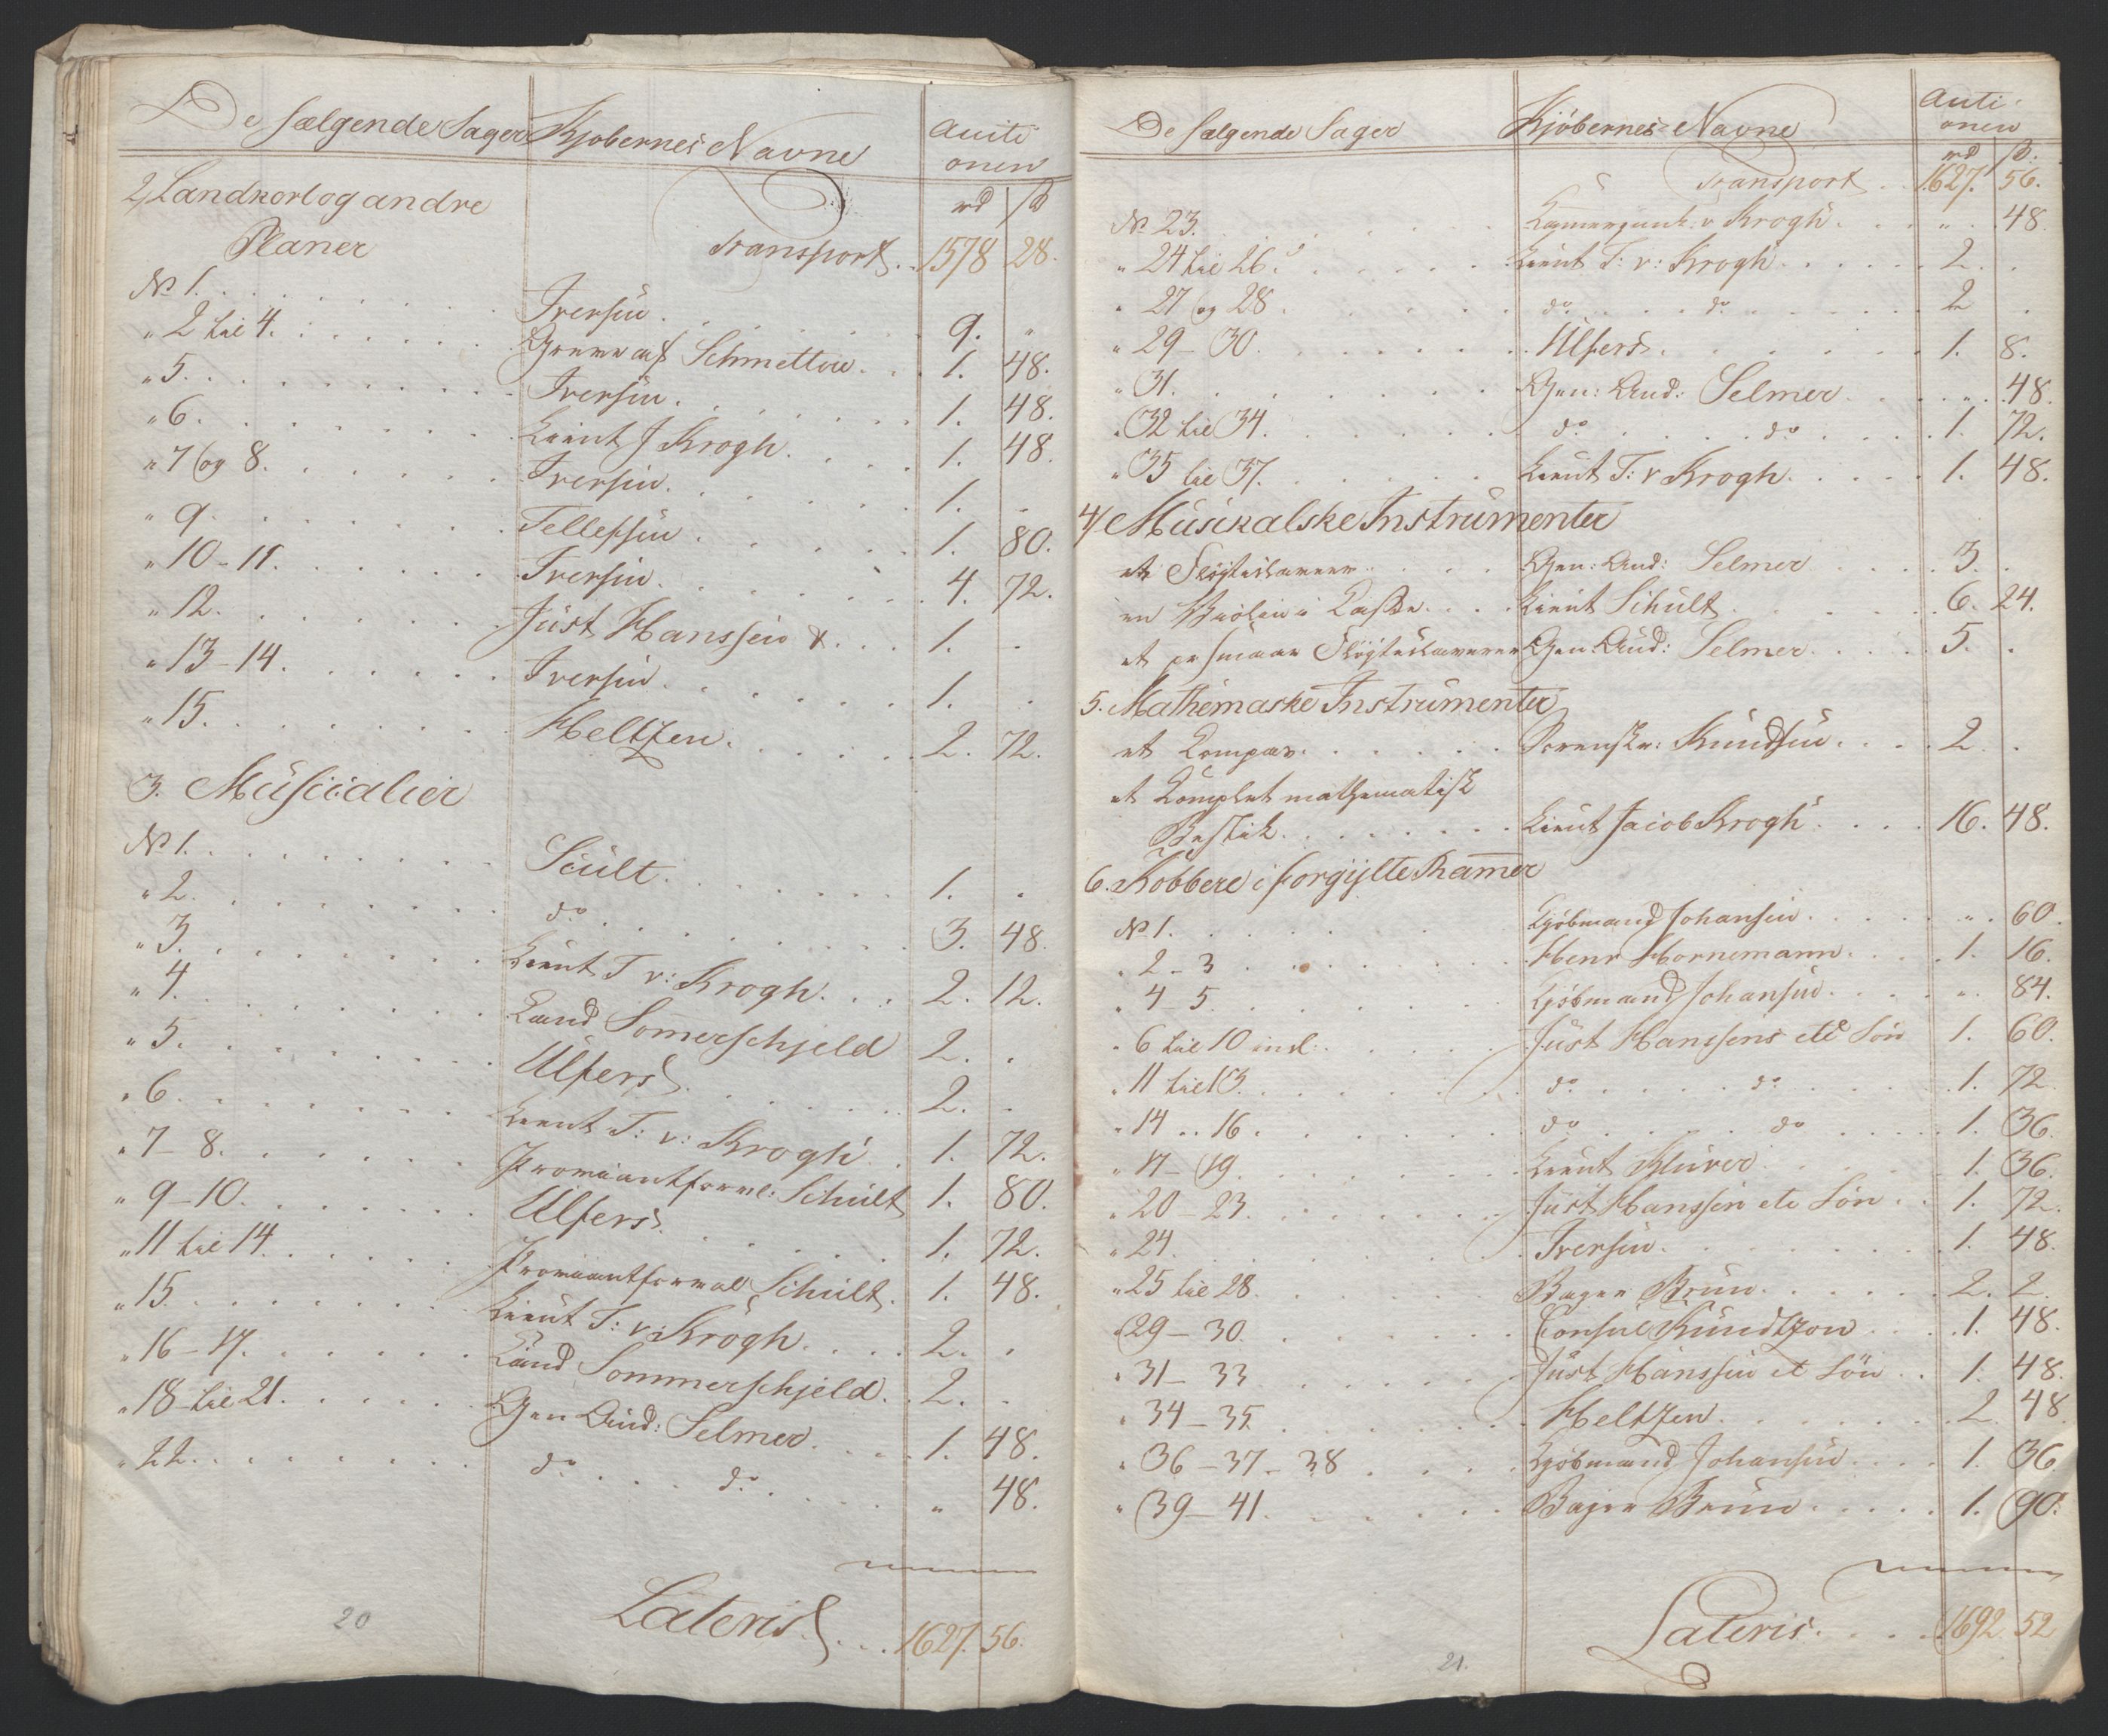 De sælgende Sager Kjøbernes Navne Aucti
onen
2, Landkort og andre rd ß
Planer Transport . . 1578 28.
No 1. Iversen. 9. "
" 2 til 4. Greve af Schmettow. 1. 48.
" 5. Iversen. 1. 48.
" 6. Lieut J Krogh. 1. 48.
" 7 og 8. Iversen. 1. .
" 9. Tellefsen 1. 80.
" 10-11. Iversen. 4. 72.
" 12. Just Hanssen & 1. .
" 13-14. Iversen 1. .
" 15. Heltzen. 2. 72.
3. Musicalier
No 1. Scult. 1. .
" 2. do 3. 48.
" 3. Lieut T v: Krogh. 2. 12.
" 4. Cand Somerschjeld 2. .
" 5. Ulfers 2. .
" 6. Lieut T: v: Krogh. 1. 72.
" 7-8. Proviantforval: Schult 1. 80.
" 9-10. Ulfers. 1. 72.
" 11 til 14. Proviantforval Schult. 1. 48.
" 15. Lieut T: v: Krogh. 2. .
" 16-17. Cand Sommerschjeld. 2. .
" 18 til 21. Gen Aud: Selmer. 1. 48.
" 22. do do " 48.
Lateris . . . 1627. 56.
20
De sælgende Sager Kjøbernes Navne Aucti
onen
rd ß:
Transport . . 1627. 56.
No 23. Kammerjunk. v Krogh. " 48.
" 24 til 26. Lieut T: v: Krogh 2. .
" 27 og 28. do do 2 .
" 29-30. Ulfers. 1. 8.
" 31. Gen: Aud: Selmer. " 48.
" 32 til 34. do do 1. 72.
" 35 til 37. Lieut T: v Krogh. 1. 48.
4/ Musikalske Instrumenter
et Fløjtelaveer Gen: Aud: Selmer 3. .
en Violin i Kasse Lieut Schult 6. 24.
et pr smaae Gen: Aud: Selmer. 5. .
5. Mathemaske Instrumenter
et Kompas. Sorenskr: Knudsen 2. .
et Komplet mathematisk
Bestik. Lieut Jacob Krogh. 16. 48.
6. Kobbere i forgylte Ramer
No 1. Kjøbmand Johansen " 60.
" 2-3 Henr Hornemann. 1. 16.
" 4-5. Kjøbmand Johansen. " 84.
" 6 til 10 incl: Just Hanssens et Søn 1. 60.
" 11 til 13. do do 1. 72
" 14 .. 16. do do 1. 36.
" 17-19. Lieut Klüver 1. 36.
" 20-23. Just Hanssen et Søn 1. 72.
" 24. Iversen. 1. 48.
" 25 til 28. Bager Brun. 2. 2.
" 29-30. Consul Knudtzon 1. 48.
" 31-33 Just Hanssen et Søn 1. 48.
" 34-35 Heltzen. 2. 48
" 36-37-38 Kjøbmand Johansen 1. 36
" 39-41. Bager Brun 1. 90.
Lateris . . . 1692. 52
21.